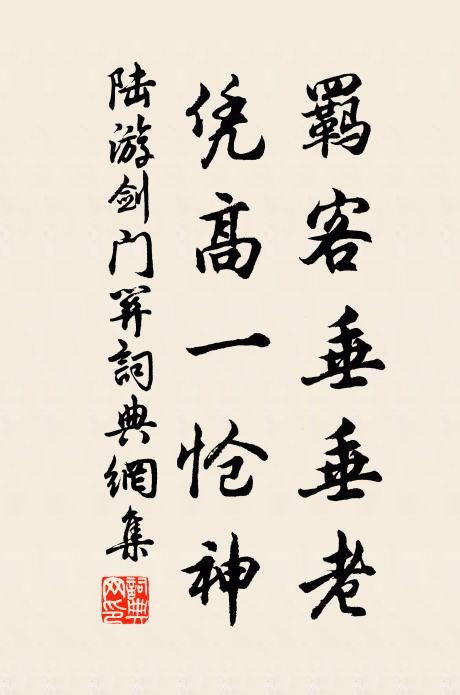 羁客垂垂老
凭高一怆神
陆游剑门关詞典網集
詞典網印